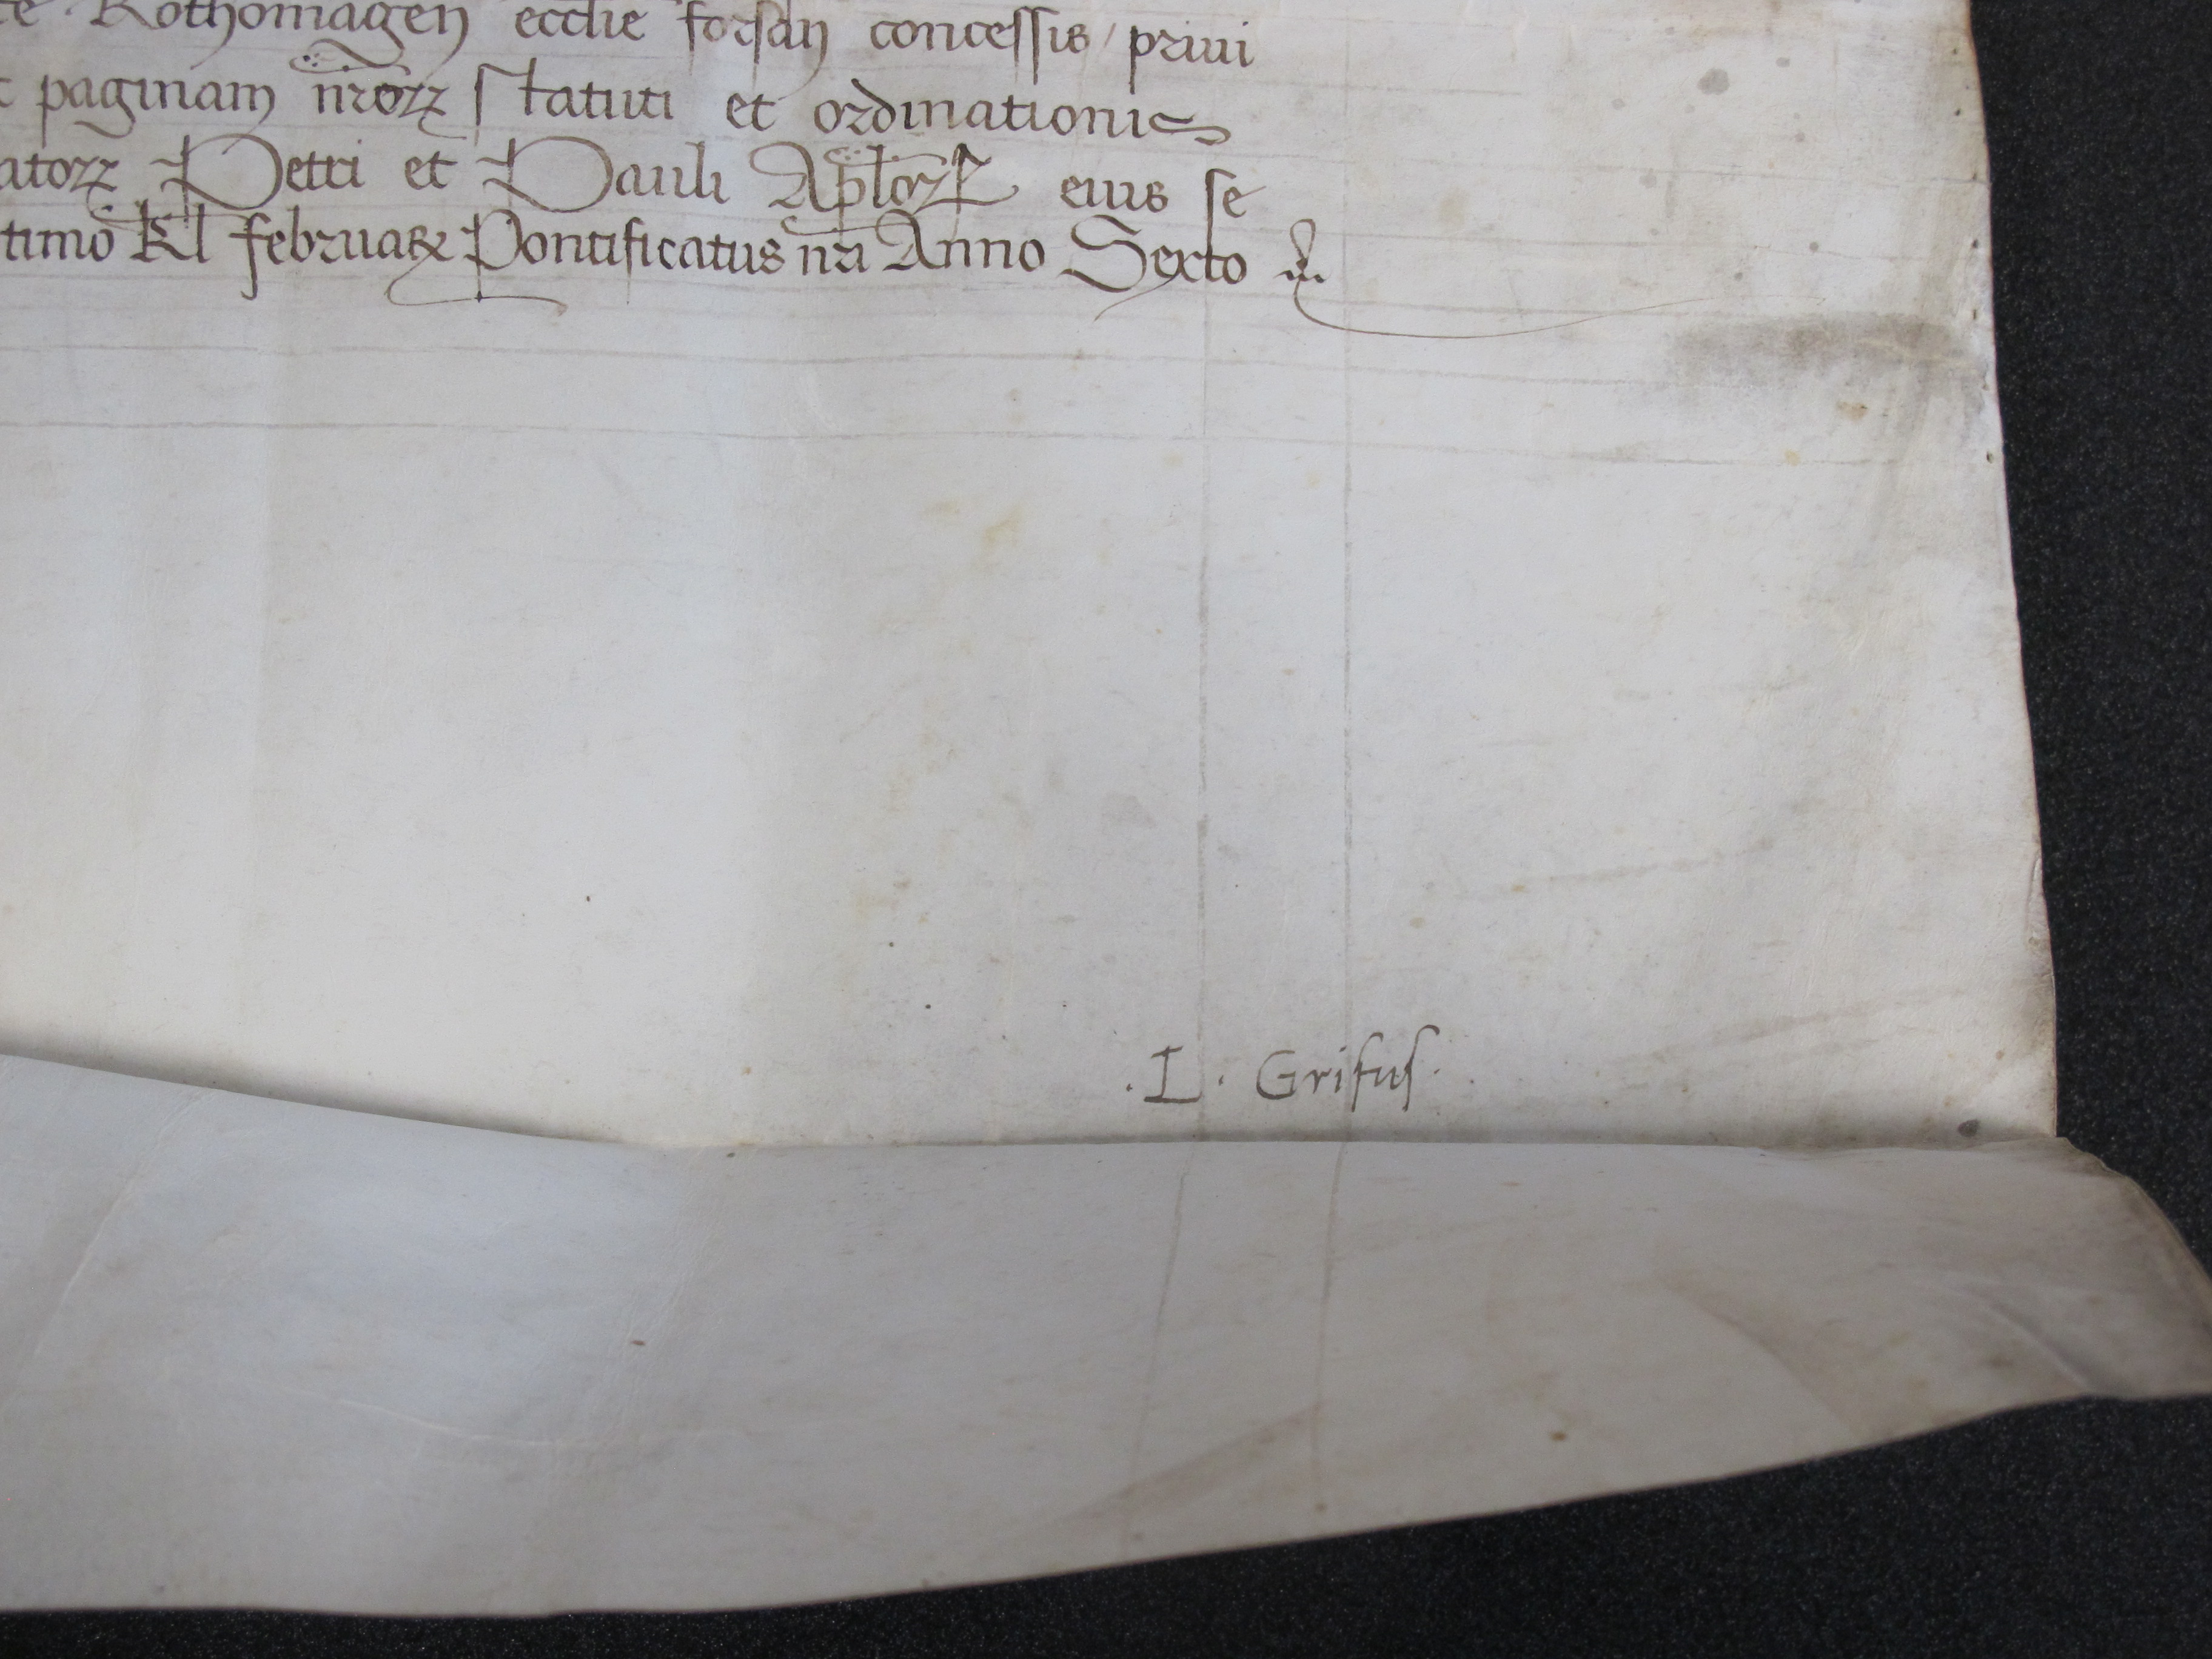 te Rothomageñ ecclie forsan concessis / priui
paginam nrorꝝ statuti et ordinationis
atorꝝ Petri et Pauli Aplorꝝ eius se
timo kl februarꝝ Pontificatus nri Anno Sexto
. L . Grifus .